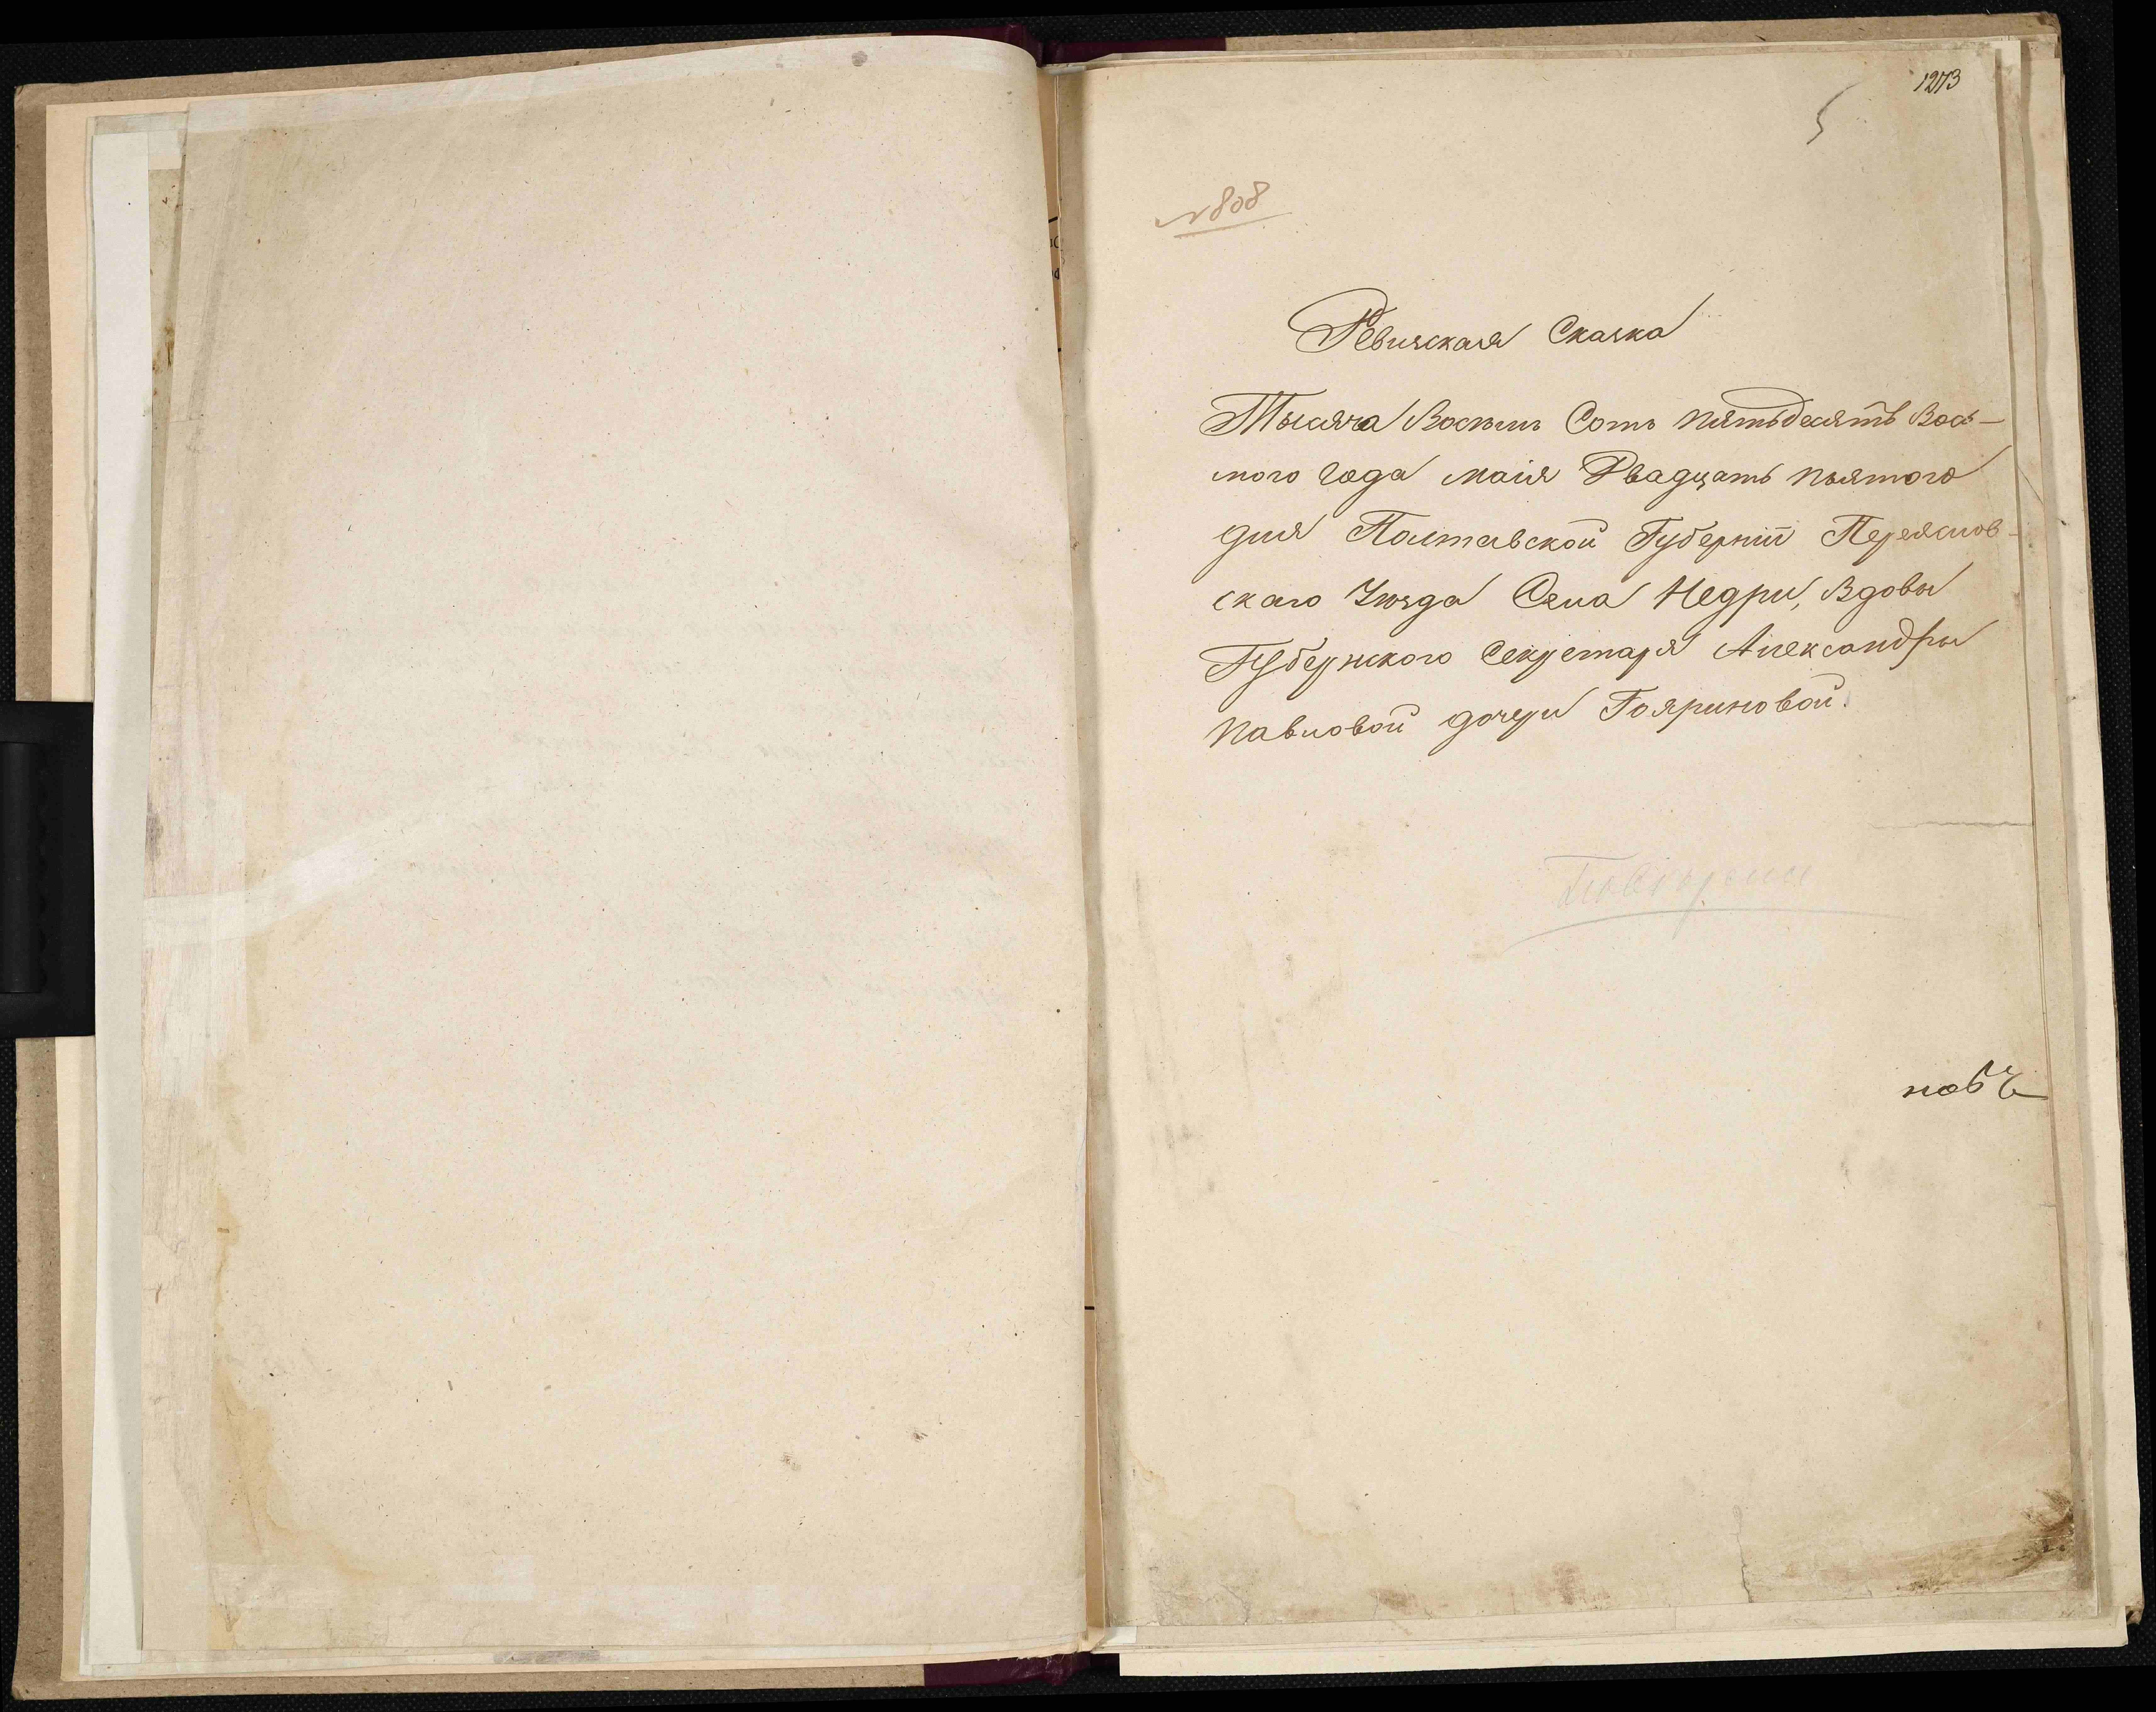 1273
5
№ 808
Ревизская Сказка
Тысяча Восемъ Сотъ пятьдесятъ Вось-
мого года маія Двадцать пьятого
дня Полтавской Губерніи Переяслов-
скаго Уезда Села Недри, Вдовы
Губернского Секретаря Александры
Павловой дочери Гояриновой.